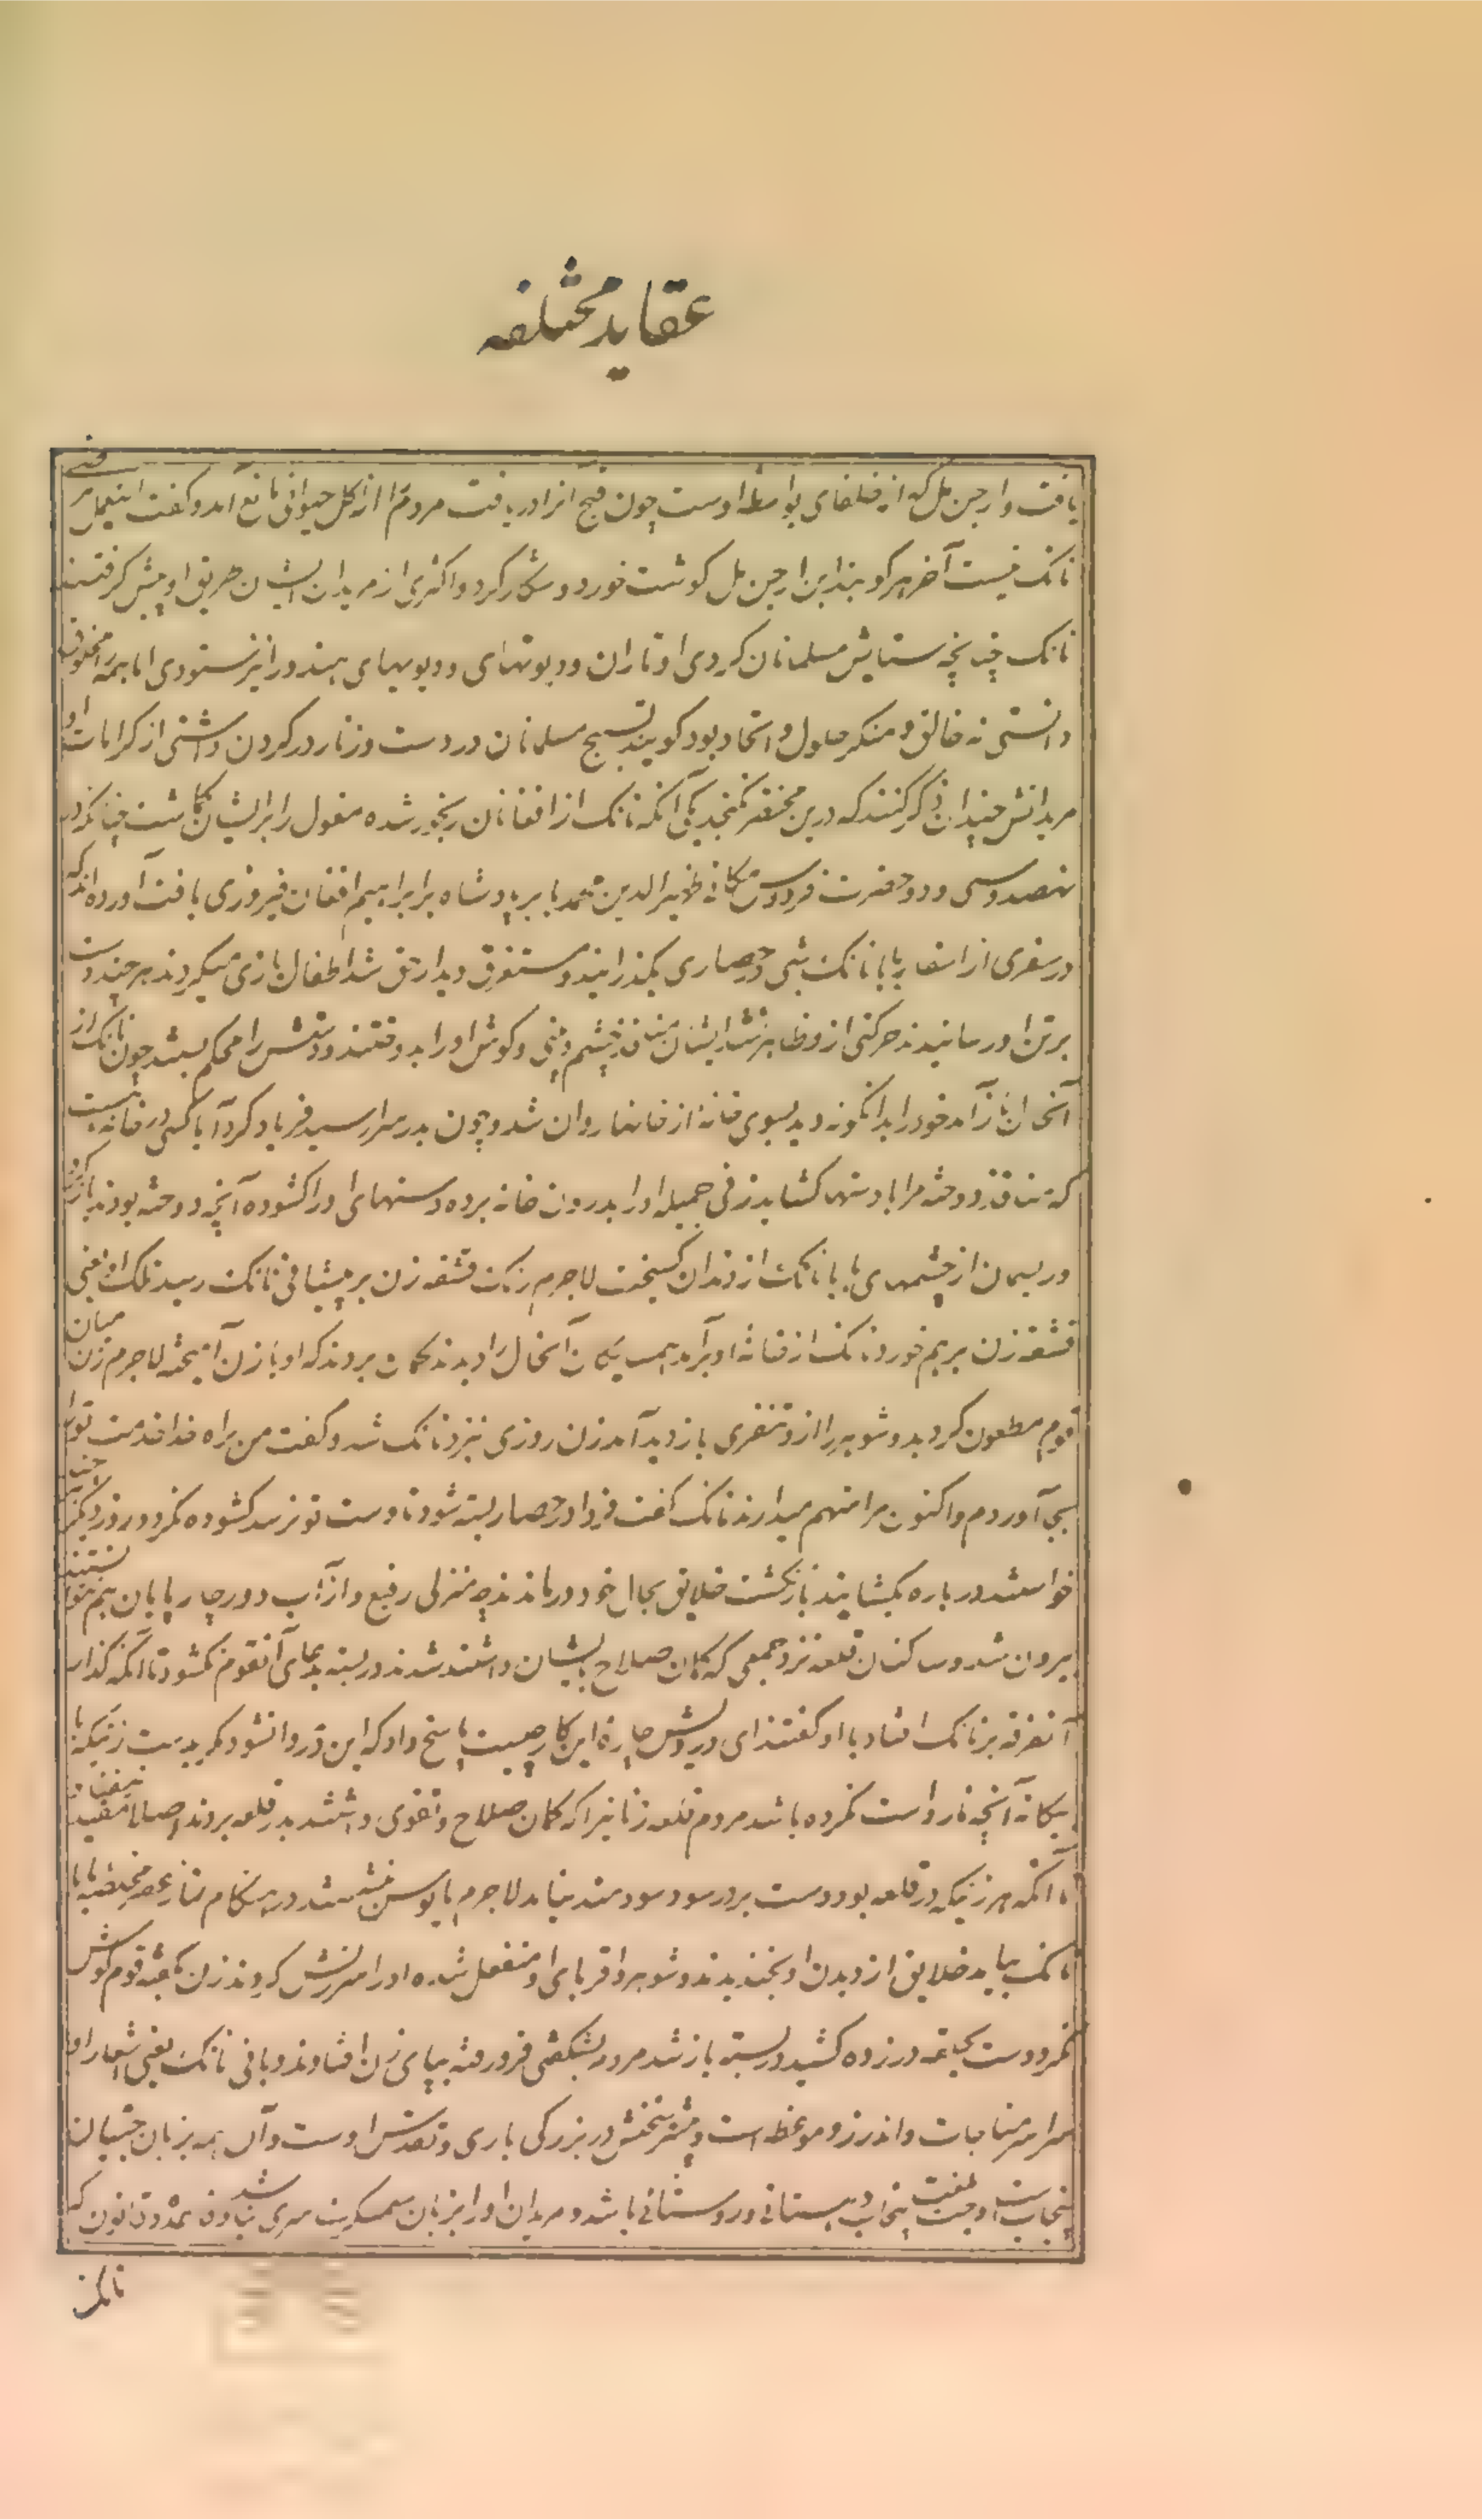 عقاید مختلفه
یافت و ارجن مل که از خلفای بواسطه اوست چون قبح آنرا دریافت مردم را از اکل حیوانی مانع آمد و گفت این عمل مرضی
نانک نیست آخر هرگوبند ابن ارجن مل گوشت خورد و شکار کرد و اکثری از مریدان ایشان طریق او پیش گرفتند
نانک چنانچه ستایش مسلمانان کردی اوتاران و دیوتهای و دیویهای هنود را نیز ستودی اما همه را مخلوق
دانستی نه خالق و منکر حلول و اتحاد بود گویند تسبیح مسلمانان در دست و زنار در گردن داشتی از کرامات او
مریدانش چندان ذکر کنند که درین مختصر نگنجد یکی آنکه نانک از افغانان رنجور شده مغول را بر ایشان گماشت چنانکه در
نهصد و سی و دو حضرت فردوس مکانی ظهیر الدین محمد بابر پادشاه بر ابراهیم افغان فیروزی یافت آورده اند که
در سفری از اسفار بابا نانک شبی در حصاری بگذرانید و مستغرق دیدار حق شد اطفال بازی میکردند هر چند دست
بر تن او رسانیدند حرکتی از و ظاهر نشد ایشان منافذ چشم و بینی و گوش او را بدوختند و دستش را محکم ببستند چون نانک از
آنحال باز آمد خود را بدانگونه دید بسوی خانه از خانها روان شد و چون بدر سرا رسید فریاد کرد آیا کسی در خانه هست
که منافذ دوخته مرا با دستها گشاید زنی جمیله او را بدرون خانه برده دستهای او را گشوده آنچه دوخته بودند باز کرد
و ریسمان از چشمهای بابا نانک از دندان گسیخت لاجرم رنگ قشقه زن بر پیشانی نانک رسید
قشقه زن بر هم خورد نانک از خانه او برآمد همسایگان آنحال را دیدند گمان بردند که او با زن آمیخته لاجرم زن میان
قوم مطعون گردید و شوهر را از و تنفری بازدید آمد زن روزی نزد نانک شد و گفت من براه خدا خدمت ترا
بجا آوردم و اکنون مرا متهم میدارند نانک گفت فردا در حصار بسته شود تا دست تو نرسد گشوده نگردد روز دیگر چندانکه
خواستند دروازه بگشایند باز نگشت خلایق بحال خود درماندند چه منزلی رفیع و از آب دور چارپایان هم نتوانستند
بیرون شد و ساکنان قلعه نزد جمعی که گمان صلاح بایشان داشتند شدند در بسته بدعای آنقوم نگشود تا آنکه گذار
آنفرقه بر نانک افتاد با او گفتند ای درویش چاره این کار چیست پاسخ داد که این در وا نشود مگر بدست زنیکه با
بیگانه آنچه نارواست نکرده باشد مردم قلعه زنانیرا که گمان صلاح و تقوی داشتند بدر قلعه بردند اصلا مفید نیفتاد
تا آنکه هر زنیکه در قلعه بود دست بر در سود سودمند نیامد لاجرم مایوس بنشستند در هنگام نماز عصر
نانک بیامد خلایق از دیدن او بخندیدند و شوهر و اقربای او منفعل شده او را سرزنش کردند زن بگفته قوم گوش
نکرد دست بحلقه در زده کشید در بسته باز شد مردم بشگفتی فرو رفته بپای زن افتادند و بانی نانک یعنی اشعار او
سراسر مناجات و اندرز و موعظه است و بیشتر سخنش در بزرگی باری و تقدس اوست و آن همه بزبان جتیان
پنجابست و جت بلغت پنجاب دهستانی و روستائی باشد و مریدان او را بزبان سهنسکرت سری نباشد
نانک